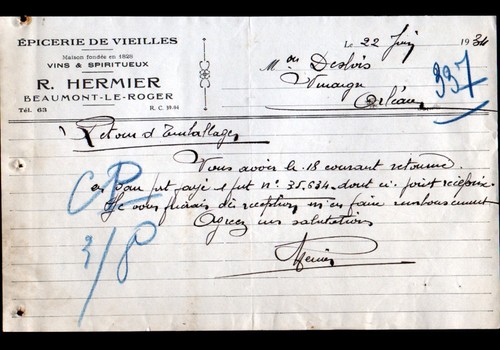 ÉPICERIE DE VIEILLES
Maison fondée en 1828
VINS & SPIRITUEUX
R. HERMIER
BEAUMONT-LE-ROGER
Tél. 63 R. C. 59.94
Le 22 Juin 1934
337
Mon Deslois
Vinaigre
Orléans
Retour d'Emballages
Vous avoir le 18 courant retourné
en port payé 1 fut n° 35.534 dont ci-joint récépissé
Je vous prierais dès réception m'en faire remboursement
Agréez mes salutations
Hermier